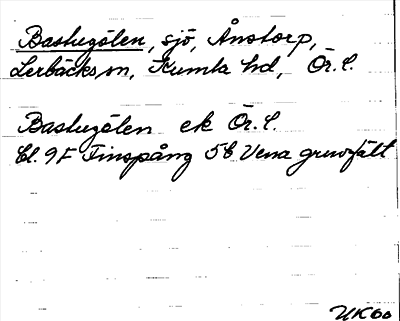 Bastugölen, sjö, Ånstorp,
Lerbäcks sn, Kumla hd, Ör. l.
Bastugölen ek Ör. l.
Bl. 9F Finspång 5b Vena gruvfält
UK60